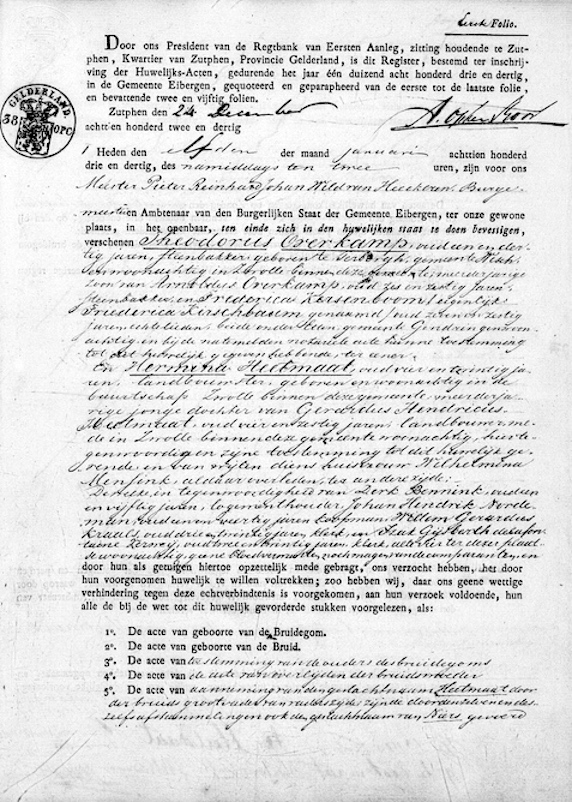 Eerste Folio.
Door ons President van de Regtbank van Eersten Aanleg, zitting houdende te Zut-
phen, Kwartier van Zutphen, Provincie Gelderland, is dit Register, bestemd ter inschrij-
ving der Huwelijks-Acten, gedurende het jaar één duizend acht honderd drie en dertig,
in de Gemeente Eibergen, gequoteerd en geparapheerd van de eerste tot de laatste folie,
en bevattende twee en vijftig folien.
Zutphen den 24 December
achttien honderd twee en dertig
GELDERLAND.
38
OPC
1 Heden den elfden der maand januari achttien honderd
drie en dertig, des namiddags ten twee uren, zijn voor ons
Meester Pieter Reinhard Johan Wild van Heeckeren, Burge-
meester en Ambtenaar van den Burgerlijken Staat der Gemeente Eibergen, ter onze gewone
plaats, in het openbaar, ten einde zich in den huwelijken staat te doen bevestigen,
verschenen Theodorus Overkamp, oud een en der-
tig jaren, steenbakker, geboren te Terborgh, gemeente Wisch,
en woonachtig in Zwolle binnen deze gemeente, meerderjarige
zoon van Arnoldus Overkamp, oud zes en zestig jaren,
steenbakker, en Frederica Kersenboom / eigenlijk
Friederica Kirschbaum genaamd / oud zeven en zestig
jaren, echtelieden, beide onder Etten, gemeente Gendringen woon-
achtig, en bij de natemelden notariele acte hunne toestemming
tot dit huwelijk gegeven hebbende, ter eener
En Hermina Heetmaat, oud vier en twintig ja-
ren, landbouwster, geboren en woonachtig in de
buurtschap Zwolle binnen deze gemeente, meerderja-
rige jonge dochter van Gerardus Hendricus
Heetmaat, oud vier en zestig jaren, landbouwer me-
de in Zwolle binnen deze gemeente woonachtig, hier te-
genwoordig en zijne toestemming tot dit huwelijk ge-
vende en van wijlen diens huisvrouw Wilhelmina
Mensink, aldaar overleden, ter andere zijde.
Dewelke, in tegenwoordigheid van Derk Bennink, oud een
en vijftig jaren, logementhouder, Johan Hendrik Norde-
man, oud een en veertig jaren koopman, Willem Gerardus
Kraals, oud drie en twintig jaren, klerk, en
oud twee en twintig jaren, klerk, alle vier ter dezer plaat-
se woonachtig, geene bloedverwanten, noch magen van de comparanten, en
door hun als getuigen hiertoe opzettelijk mede gebragt, ons verzocht hebben, het door
hun voorgenomen huwelijk te willen voltrekken; zoo hebben wij, daar ons geene wettige
verhindering tegen deze echtverbindtenis is voorgekomen, aan hun verzoek voldoende, hun
alle de bij de wet tot dit huwelijk gevorderde stukken voorgelezen, als:
1º. De acte van geboorte van de Bruidegom.
2º. De acte van geboorte van de Bruid.
3º. De acte van toestemming van de ouders des bruidegoms
4º. De acte van de acte van overlijden der bruidsmoeder
5º. De acte van aanneming van den geslachtnaam Heetmaat door
der bruids grootvader van vaders zijde, zijnde door denzelven en des-
zelfs afstammelingen ook de geslachtnaam van Kiers, gevoerd